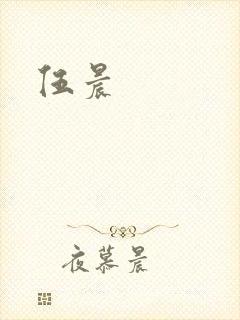 伍晨
夜慕晨